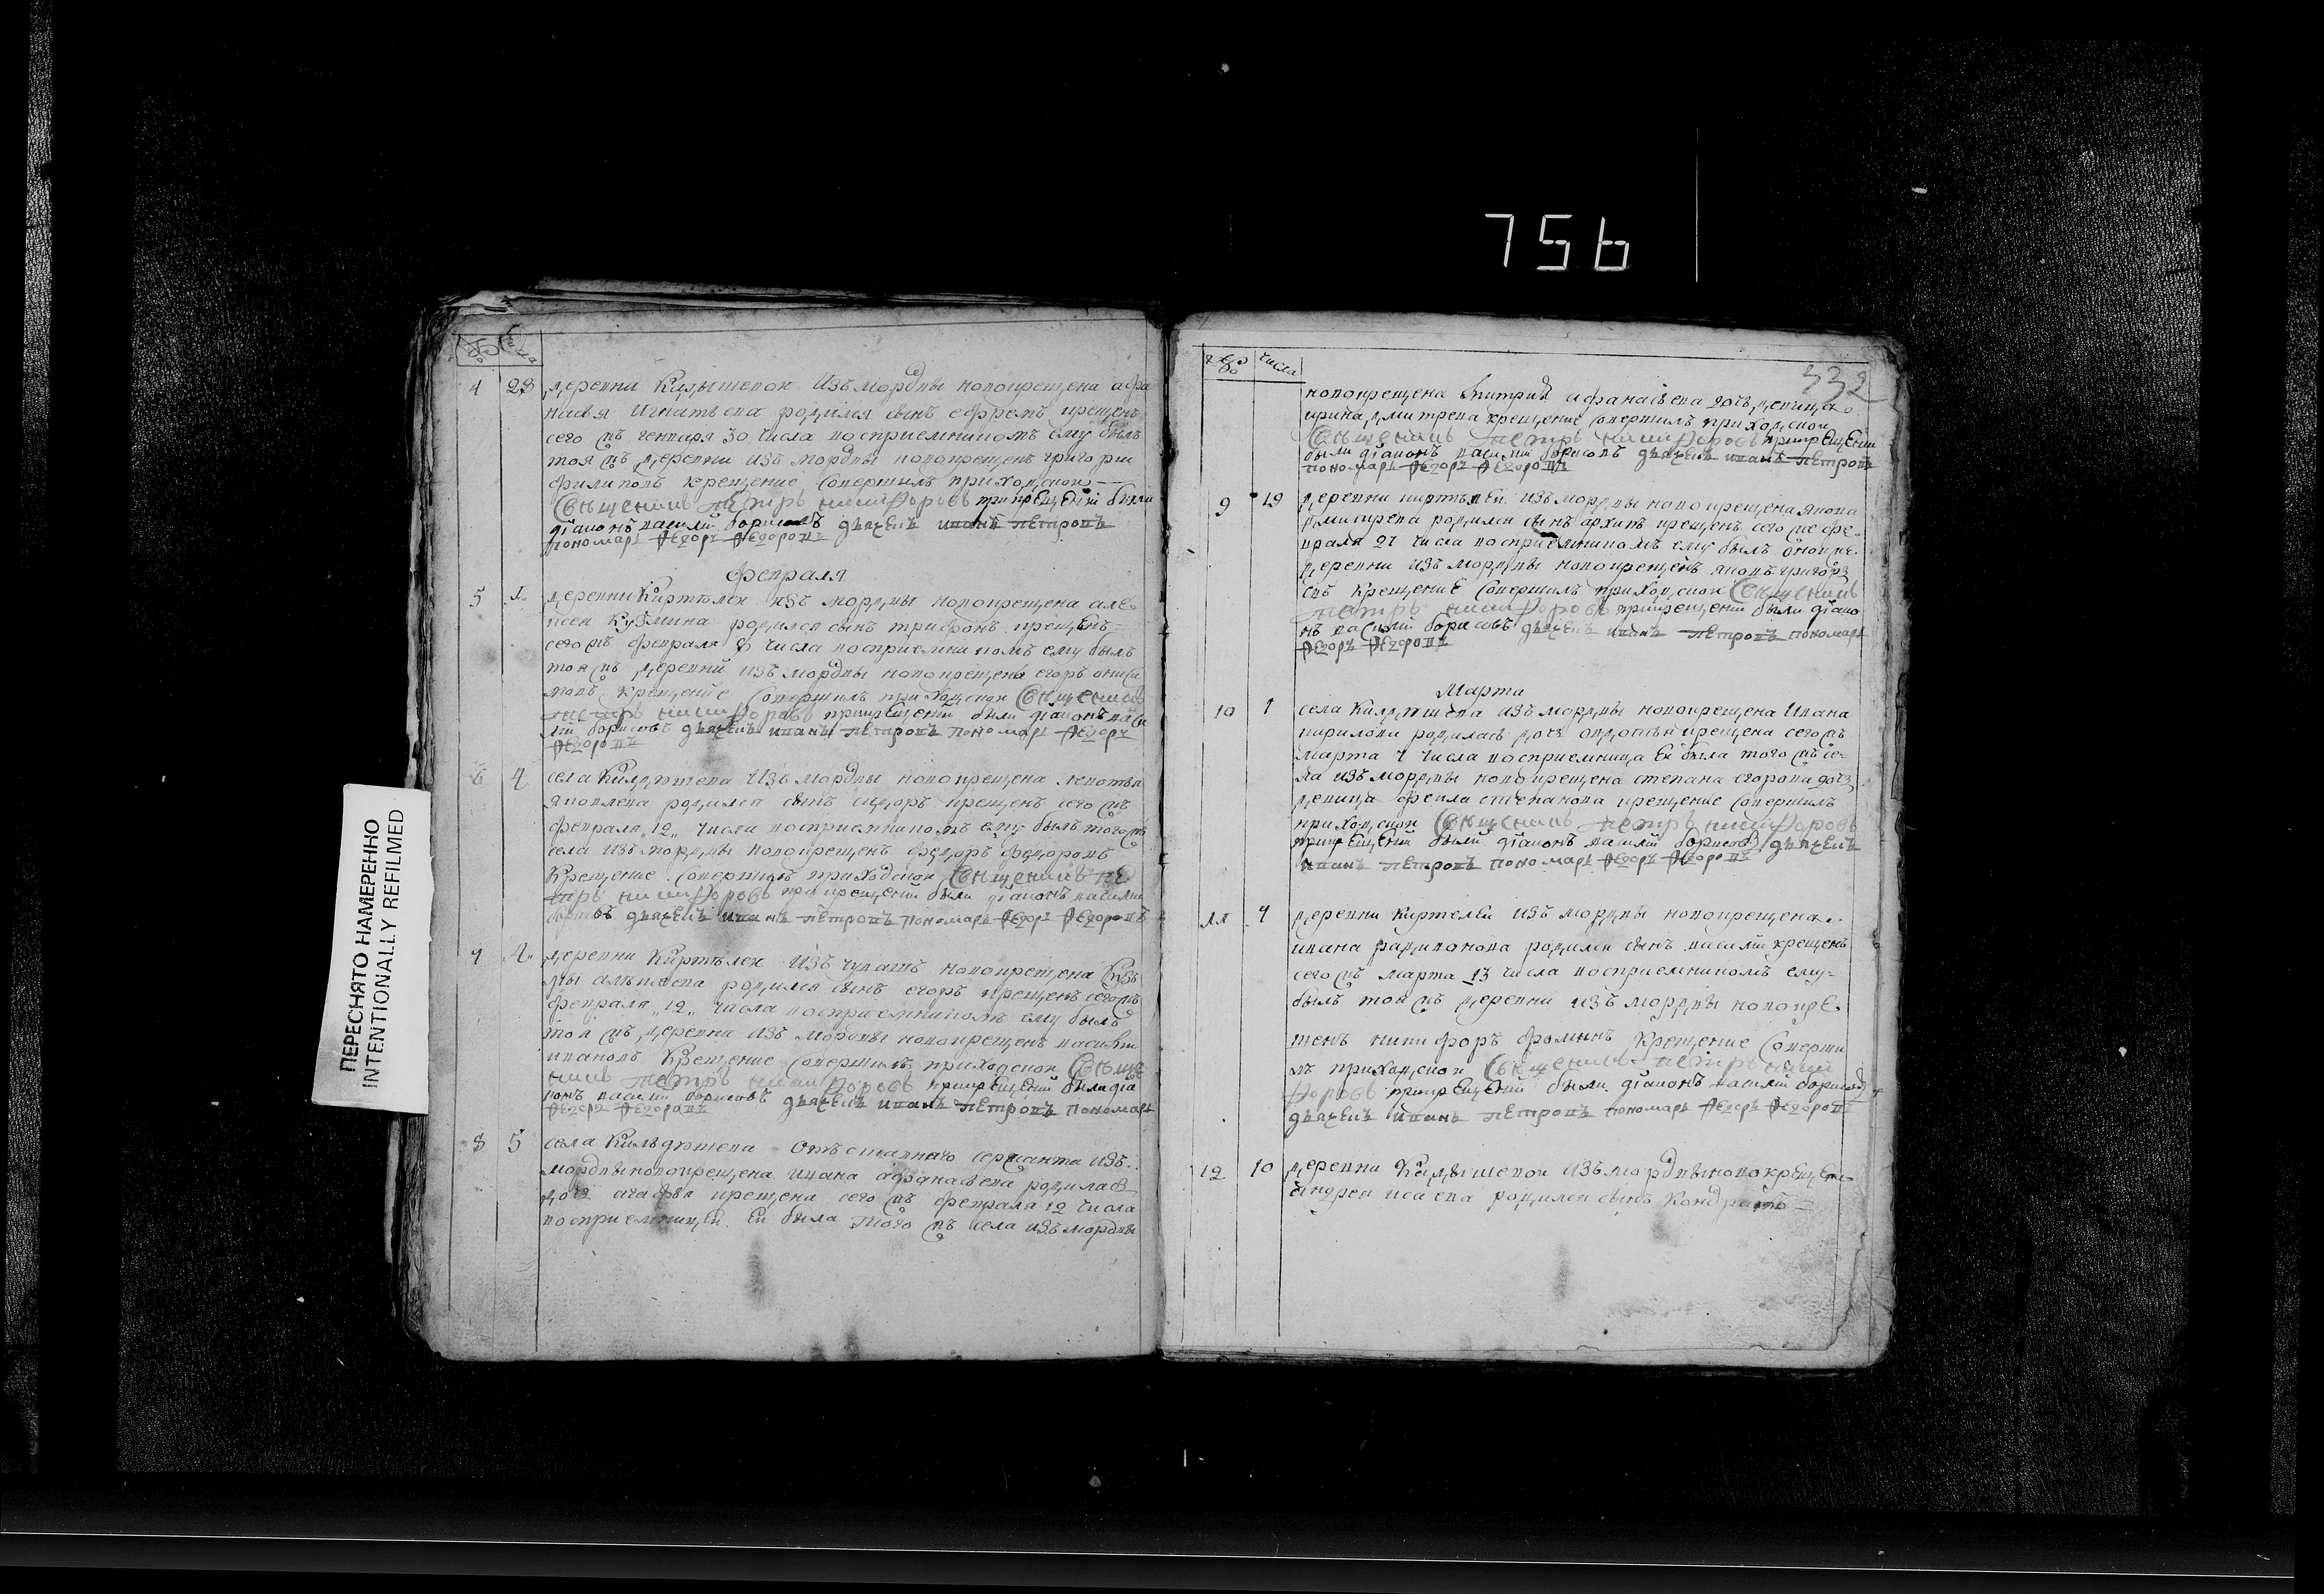 756
ПЕРЕСНЯТО НАМЕРЕННО
INTENTIONALLY REFILMED
4 28 деревни изъ мордвы новокрещена афа
насья Игнатьева родился сынъ ефремъ крещенъ
сего жъ генваря 30 числа восприемникомъ ему былъ
тоя жъ деревни изъ мордвы новокрещенъ григореи
филиповъ крещение совершилъ приходскои
Священникъ Петръ Никифоровъ при крещении были
диаконъ василий борисовъ дьячекъ иванъ петровъ
пономарь Федоръ Федоровъ
февраля
5 деревни Киртелеи изъ мордвы новокрещена але
ксея Кузмина родился сынъ трифонъ крещенъ
сего жъ февраля 8 числа восприемникомъ ему былъ
тоя жъ деревни изъ мордвы новокрещенъ егоръ
крещение совершилъ приходскои Священникъ
Петръ Никифоровъ при крещении были диаконъ васи
лий борисовъ дьячекъ иванъ петровъ пономарь Федоръ
Федоровъ
6 4 села Килдюшева изъ мордвы новокрещена леонтья
яковлева родился сынъ сидоръ крещенъ сего жъ
февраля 12 числа восприемникомъ ему былъ того жъ
села изъ мордвы новокрещенъ федоръ федоровъ
Крещение совершилъ приходскои Священникъ Пе
тръ Никифоровъ при крещении были диаконъ василии
борисовъ дьячекъ иванъ петровъ пономарь Федоръ Федоровъ
7 4 деревни Киртелеи изъ чувашъ новокрещена Кузь
мы родился сынъ егоръ крещенъ сего жъ
февраля 12 числа восприемникомъ ему былъ
тоя жъ деревни изъ мордвы новокрещенъ василеи
ивановъ Крещение совершилъ приходскои Священ
никъ Петръ Никифоровъ при крещении были диа
конъ василии борисовъ дьячекъ иванъ петровъ пономарь
Федоръ Федоровъ
8 5 села Кильдюшева отъставнаго сержанта изъ
мордвы новокрещена ивана афанасьева родилась
дочь агафья крещена сего жъ февраля 12 числа
восприемницеи еи была того жъ села изъ мордвы
числа
332
новокрещена афанасьева дочь девица
ирина дмитрева крещение совершилъ приходскои
Священникъ Петръ Никифоровъ при крещении
были диаконъ василии борисовъ дьячекъ иванъ петровъ
пономарь Федоръ Федоровъ
9 19 деревни киртелеи изъ мордвы новокрещена якова
дмитрева родился сынъ архипъ крещенъ сего же фе
враля 21 числа восприемникомъ ему былъ
деревни изъ мордвы новокрещенъ яковъ григорь
евъ Крещение совершилъ приходскои Священникъ
Петръ Никифоровъ при крещении были диако
нъ василии борисовъ дьячекъ иванъ петровъ пономарь
Федоръ Федоровъ
Марта
10 1 села Килдюшева изъ мордвы новокрещена Ивана
кирилова родилась дочь евдотья крещена сего жъ
марта 4 числа восприемница еи была того жъ се
ла изъ мордвы новокрещена степана егорова дочь
девица фекла степанова крещение совершилъ
приходскои Священникъ Петръ Никифоровъ
при крещении были диаконъ василии борисовъ дьячекъ
иванъ петровъ пономарь Федоръ Федоровъ
11 4 деревни Киртелеи изъ мордвы новокрещена
ивана радионова родился сынъ василии крещенъ
сего жъ марта 13 числа восприемникомъ ему
былъ тоя жъ деревни изъ мордвы новокре
щенъ никифоръ фоминъ Крещение соверши
лъ приходскои Священникъ Петръ Ники
форовъ при крещении были диаконъ василии борисовъ
дьячекъ иванъ петровъ пономарь Федоръ Федоровъ
12 10 деревни изъ мордвы новокрещена
андрея исаева родился сынъ Кондратъ